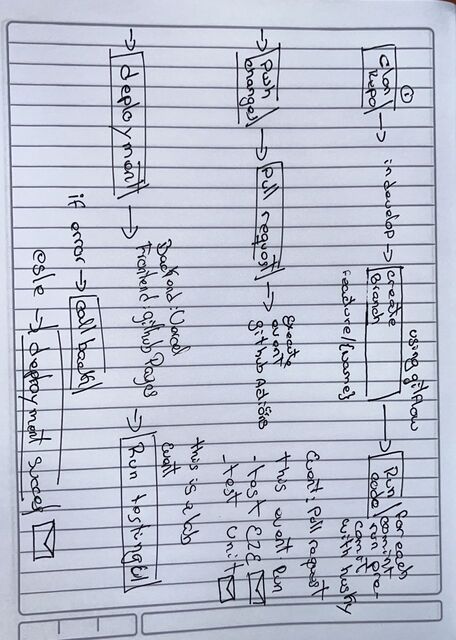 ①
Clon
Repo
in develop
create
Branch
feature/{name}
using gitflow
Run
code
For each
commit
run pre-
commit
with husky
Push
changes
Pull request
execute
event
github Actions
Event: Pull request
this event run
- test E2E
- test Unit
this is a job
deployment
Backend: Vercel
Frontend github Pages
Run testing
if error → call back
esle → deployment succes